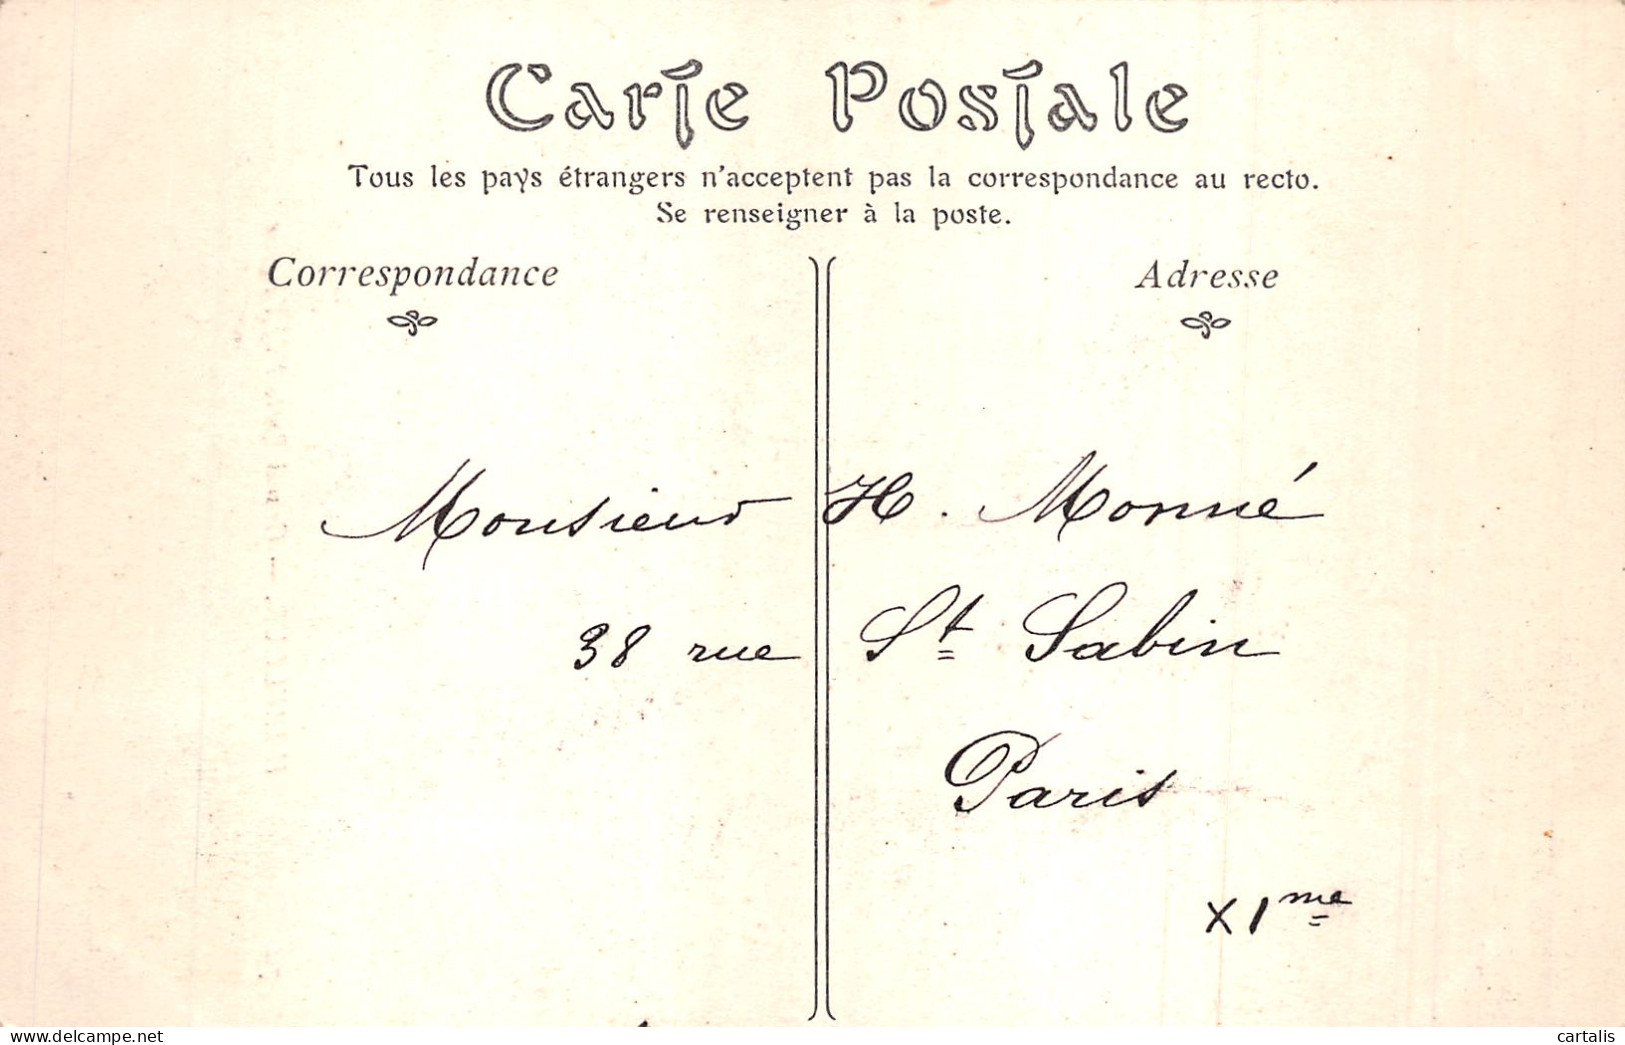 Carte Postale
Tous les pays étrangers n'acceptent pas la correspondance au recto.
Se renseigner à la poste.
Correspondance
Adresse
Monsieur H. Monné
38 rue St Sabin
Paris
XIme
delcampe.net
cartalis